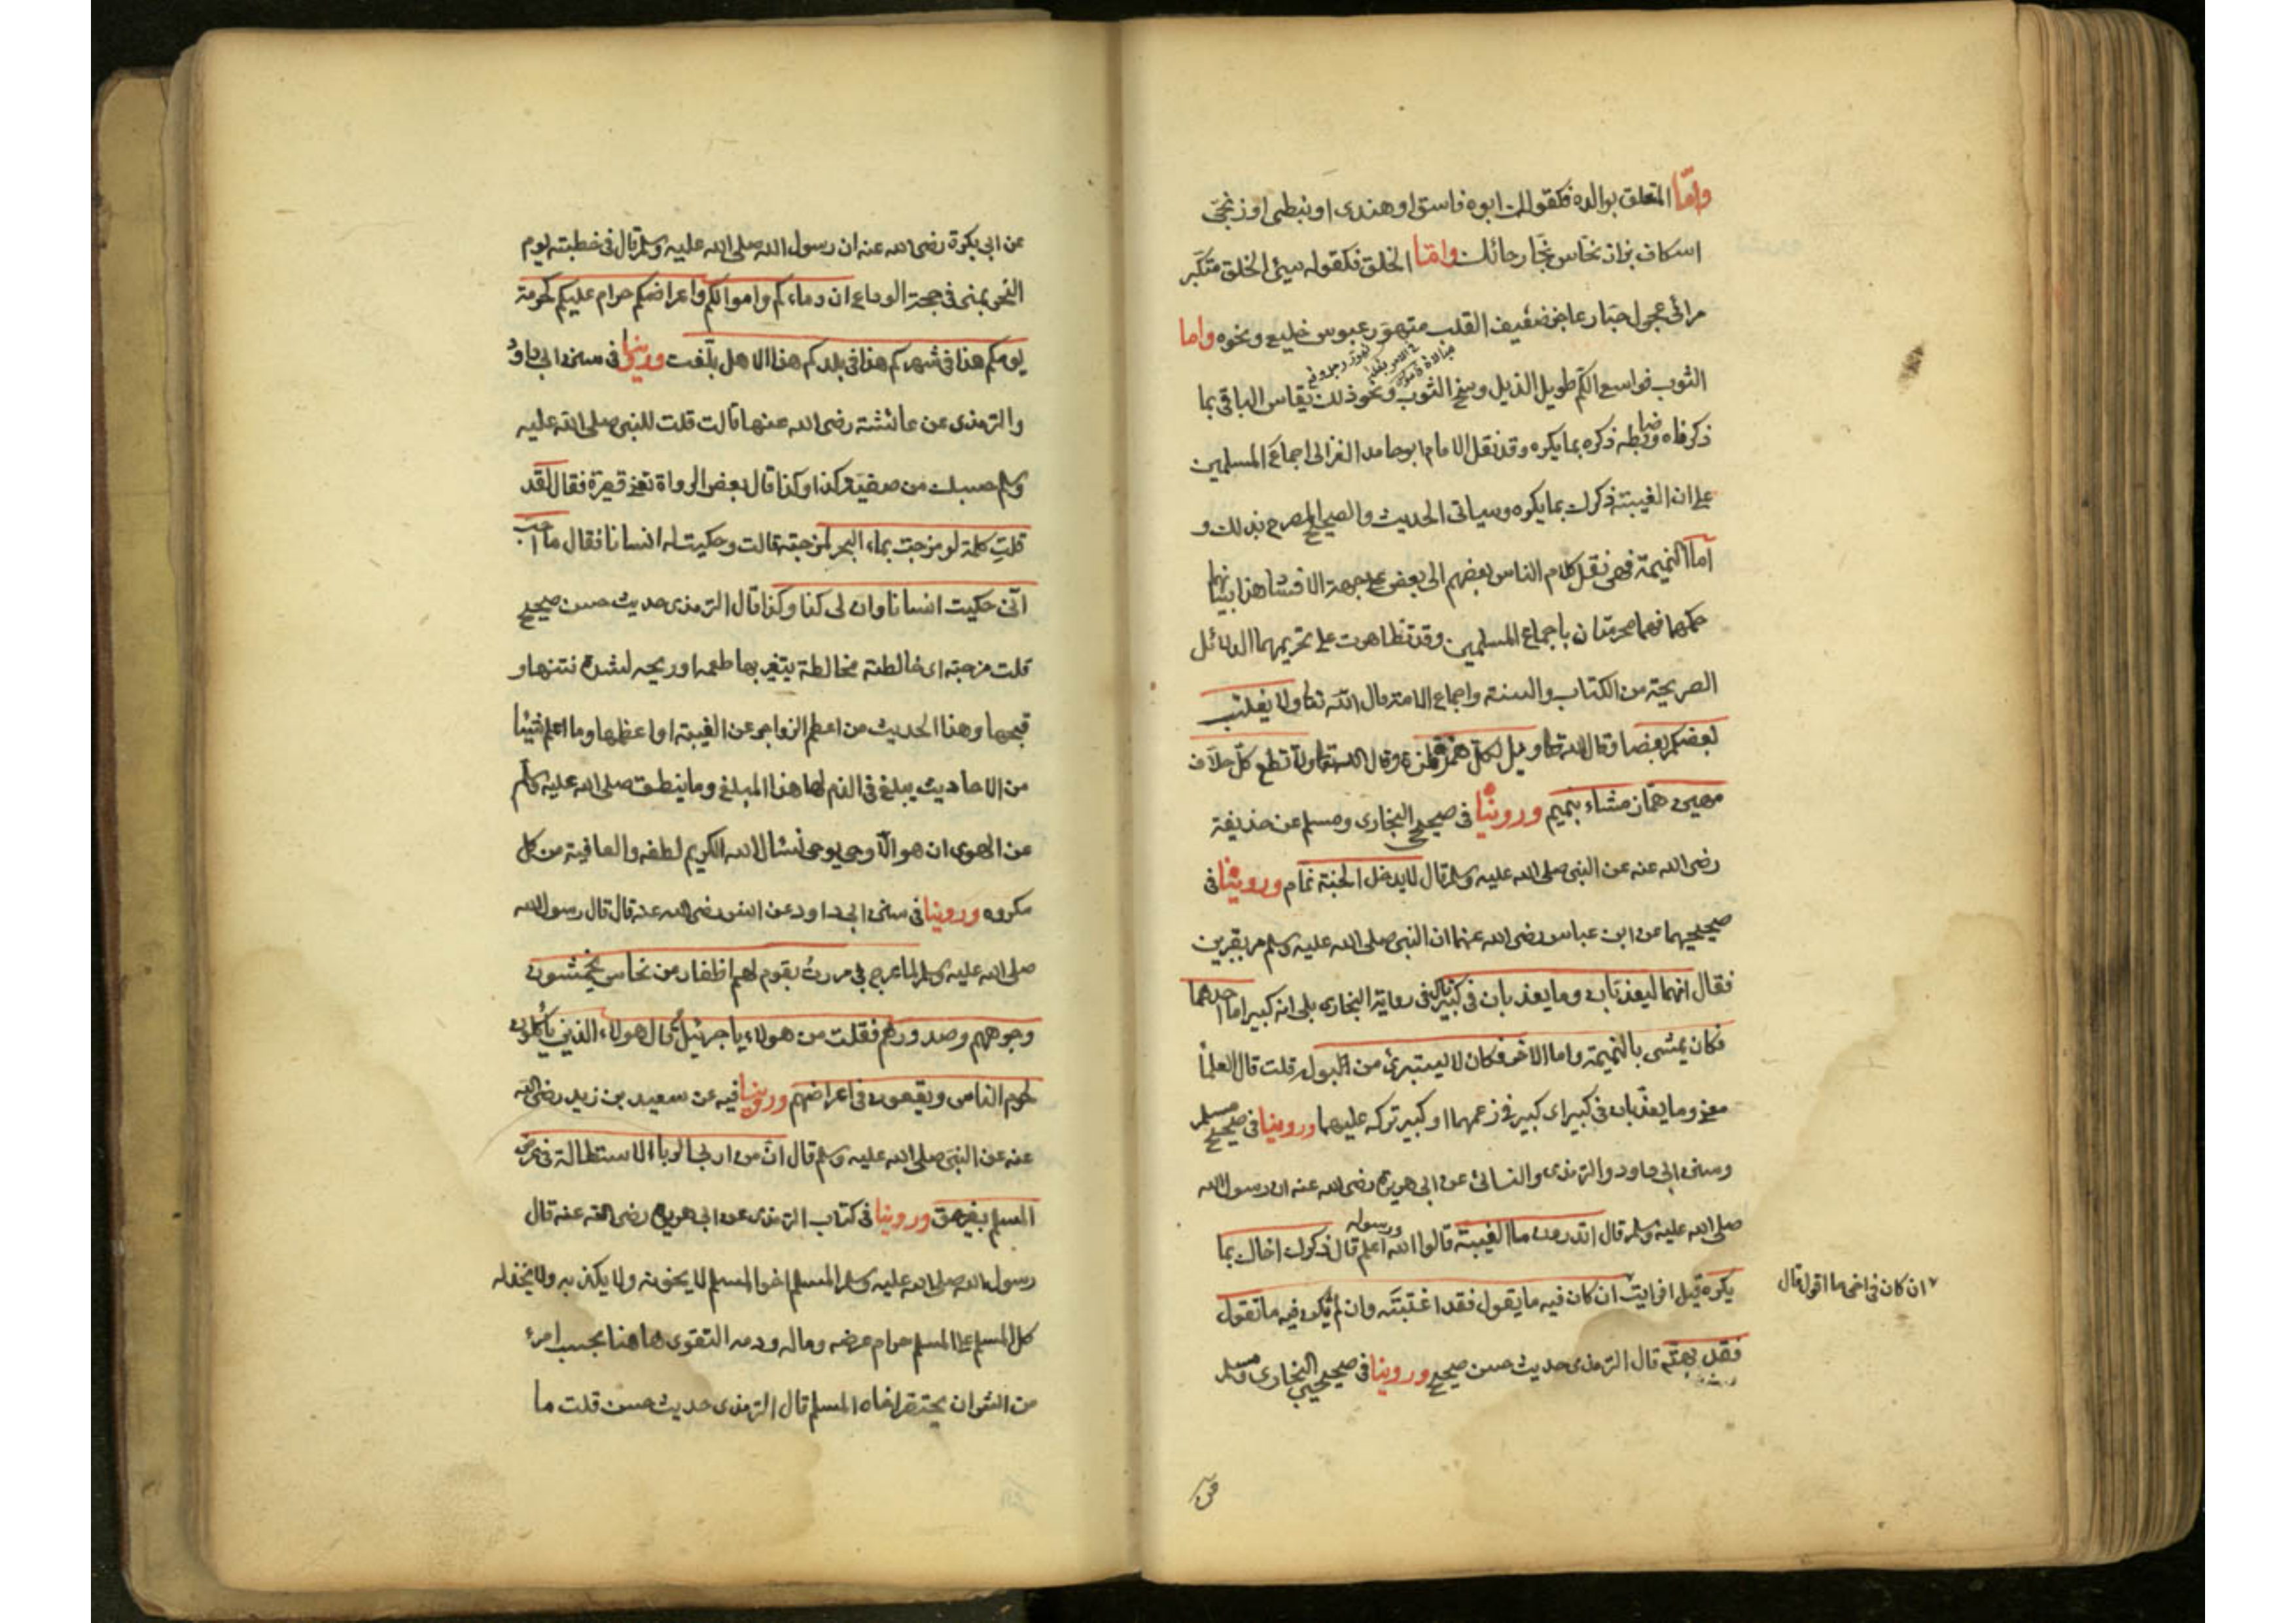 واما المتعلق بوالده فكقولك ابوه فاسق او هندى او نبطى او زنجى
اسكاف بزاز نخاس نجار حائك واما الخلق فكقوله سيئ الخلق متكبر
مرائى عجول جبار عاجز ضعيف القلب متهور عبوس خليع ونحوه واما
الثوب فواسع الكم طويل الذيل وسخ الثوب ونحو ذلك يقاس الباقى بما
ذكرناه وضابطه ذكره بما يكره وقد نقل الامام ابو حامد الغزالى اجماع المسلمين
على ان الغيبة ذكرك بما يكره وسياتى الحديث والصحيح المصرح بذلك و
اما النميمة فهى نقل كلام الناس بعضهم الى بعض على جهة الافساد هذا بيانهما
حكمهما فهما محرمتان باجماع المسلمين وقد تظاهرت على تحريمهما الدلائل
الصريحة من الكتاب والسنة واجماع الامة قال الله تعا ولا يغتب
بعضكم بعضا وقال الله تعا ويل لكل همزة لمزة وقال الله تعا ولا تطع كل حلاف
مهين هماز مشاء بنميم وروينا فى صحيح البخارى ومسلم عن حذيفة
رضى الله عنه عن النبى صلى الله عليه وسلم قال لا يدخل الجنة نمام وروينا فى
صحيحيهما عن ابن عباس رضى الله عنهما ان النبى صلى الله عليه وسلم مر بقبرين
فقال انهما ليعذبان وما يعذبان فى كبير قال فى رواية البخارى بلى انه كبير اما احدهما
فكان يمشى بالنميمة واما الاخر فكان لا يستبرئ من البول قلت قال العلما
معنى وما يعذبان فى كبير اى كبير فى زعمهما او كبير تركه عليهما وروينا فى صحيح مسلم
وسنن ابى داود والترمذى والنسائى عن ابى هريرة رضى الله عنه ان رسول الله
صلى الله عليه وسلم قال اتدرون ما الغيبة قالوا الله ورسوله اعلم قال ذكرك اخاك بما
يكره قيل افرايت ان كان فيه ما يقول فقد اغتبته وان لم يكن فيه ما تقول
ان كان فى اخى ما اقول قال
فقد بهته قال الترمذى حديث حسن صحيح وروينا فى صحيحى البخارى ومسلم
عن
عن ابى بكرة رضى الله عنه ان رسول الله صلى الله عليه وسلم قال فى خطبته يوم
النحر بمنى فى حجة الوداع ان دماءكم واموالكم واعراضكم حرام عليكم كحرمة
يومكم هذا فى شهركم هذا فى بلدكم هذا الا هل بلغت وروينا فى سنن ابى داود
والترمذى عن عائشة رضى الله عنها قالت قلت للنبى صلى الله عليه
وسلم حسبك من صفية كذا وكذا قال بعض الرواة تعنى قصيرة فقال لقد
قلت كلمة لو مزجت بماء البحر لمزجته قالت وحكيت له انسانا فقال ما احب
انى حكيت انسانا وان لى كذا وكذا قال الترمذى حديث حسن صحيح
قلت مزجته اى خالطته مخالطة يتغير بها طعمه او ريحه لشدة نتنها و
قبحها وهذا الحديث من اعظم الزواجر عن الغيبة او اعظمها وما اعلم شيئا
من الاحاديث يبلغ فى الذم لها هذا المبلغ وما ينطق صلى الله عليه وسلم
عن الهوى ان هو الا وحى يوحى نسال الله الكريم لطفه والعافية من كل
مكروه وروينا فى سنن ابى داود عن انس رضى الله عنه قال قال رسول الله
صلى الله عليه وسلم لما عرج بى مررت بقوم لهم اظفار من نحاس يخمشون
وجوههم وصدورهم فقلت من هولاء يا جبرئيل قال هولاء الذين ياكلون
لحوم الناس ويقعون فى اعراضهم وروينا فيه عن سعيد بن زيد رضى الله
عنه عن النبى صلى الله عليه وسلم قال ان من اربى الربا الاستطالة فى عرض
المسلم بغير حق وروينا فى كتاب الترمذى عن ابى هريرة رضى الله عنه قال
رسول الله صلى الله عليه وسلم المسلم اخو المسلم لا يخونه ولا يكذبه ولا يخذله
كل المسلم على المسلم حرام عرضه وماله ودمه التقوى هاهنا بحسب امرء
من الشر ان يحتقر اخاه المسلم قال الترمذى حديث حسن قلت ما